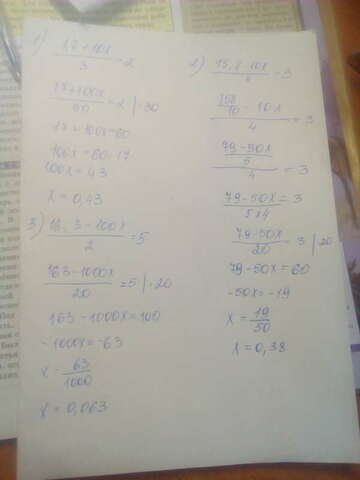 1) 1,7 + 10x / 3 = 2
17+100x / 30 = 2 | ·30
17 + 100x = 60
100x = 60 - 17
100x = 43
x = 0,43
3) 16,3 - 100x / 2 = 5
163 - 1000x / 20 = 5 | · 20
163 - 1000x = 100
-1000x = -63
x = 63 / 1000
x = 0,063
2) 15,8 - 10x / 4 = 3
158 / 10 - 10x / 4 = 3
79 - 50x / 5 / 4 = 3
79 - 50x / 5×4 = 3
79 - 50x / 20 = 3 | ·20
79 - 50x = 60
-50x = -19
x = 19 / 50
x = 0,38